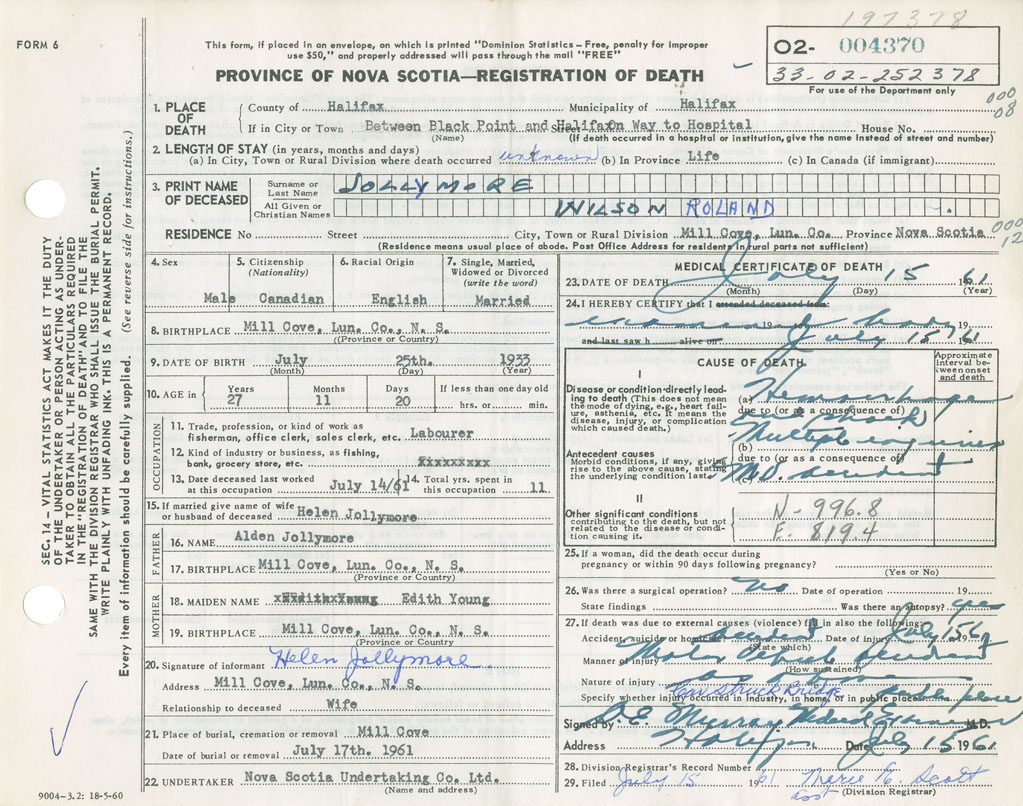 197378
FORM 6
This form, if placed in an envelope, on which is printed "Dominion Statistics – Free, penalty for improper
use $50," and properly addressed will pass through the mail "FREE"
02- 004370
33-02-252378
For use of the Department only
PROVINCE OF NOVA SCOTIA—REGISTRATION OF DEATH
000
08
1. PLACE OF DEATH
County of Halifax Municipality of Halifax
If in City or Town Between Black Point and Halifax Street On Way to Hospital House No.
(Name) (If death occurred in a hospital or institution, give the name instead of street and number)
2. LENGTH OF STAY (in years, months and days)
(a) In City, Town or Rural Division where death occurred unknown (b) In Province Life (c) In Canada (if immigrant)
3. PRINT NAME OF DECEASED
Surname or Last Name JOLLYMORE
All Given or Christian Names WILSON ROLAND
000
12
RESIDENCE No. Street City, Town or Rural Division Mill Cove, Lun. Co., Province Nova Scotia
(Residence means usual place of abode. Post Office Address for residents in rural parts not sufficient)
4. Sex Male
5. Citizenship (Nationality) Canadian
6. Racial Origin English
7. Single, Married, Widowed or Divorced (write the word) Married
8. BIRTHPLACE Mill Cove, Lun. Co., N. S.
(Province or Country)
9. DATE OF BIRTH July 25th. 1933
(Month) (Day) (Year)
10. AGE in Years 27 Months 11 Days 20 If less than one day old hrs. or min.
OCCUPATION
11. Trade, profession, or kind of work as
fisherman, office clerk, sales clerk, etc. Labourer
12. Kind of industry or business, as fishing,
bank, grocery store, etc. xxxxxxxxx
13. Date deceased last worked at this occupation July 14/61 14. Total yrs. spent in this occupation 11
15. If married give name of wife
or husband of deceased Helen Jollymore
FATHER
16. NAME Alden Jollymore
17. BIRTHPLACE Mill Cove, Lun. Co., N. S.
(Province or Country)
MOTHER
18. MAIDEN NAME Edith Young
19. BIRTHPLACE Mill Cove, Lun. Co., N. S.
(Province or Country)
20. Signature of informant Helen Jollymore
Address Mill Cove, Lun. Co., N. S.
Relationship to deceased Wife
21. Place of burial, cremation or removal Mill Cove
Date of burial or removal July 17th. 1961
22. UNDERTAKER Nova Scotia Undertaking Co. Ltd.
(Name and address)
MEDICAL CERTIFICATE OF DEATH
23. DATE OF DEATH July 15 1961
(Month) (Day) (Year)
24. I HEREBY CERTIFY that I attended deceased from:
examined body 19 19
and last saw h alive on July 15 1961
CAUSE OF DEATH
Approximate interval between onset and death
I
Disease or condition directly leading to death (This does not mean the mode of dying, e.g., heart failure, asthenia, etc. It means the disease, injury, or complication which caused death.)
(a) Hemorrhage
due to (or as a consequence of)
& shock
Multiple injuries
(b)
due to (or as a consequence of)
Antecedent causes
Morbid conditions, if any, giving rise to the above cause, stating the underlying condition last.
(c) M.V. accident
II
Other significant conditions
contributing to the death, but not related to the disease or condition causing it.
N - 996.8
E - 819.4
25. If a woman, did the death occur during
pregnancy or within 90 days following pregnancy?
(Yes or No)
26. Was there a surgical operation? No Date of operation 19
State findings Was there an autopsy? yes
27. If death was due to external causes (violence) fill in also the following:
Accident, suicide or homicide accident Date of injury July 15 1961
(State which)
Manner of injury Motor Vehicle accident
(How sustained)
Nature of injury as above
Car Struck Bridge
Specify whether injury occurred in industry, in home, or in public place Public place
Signed by Murray Medical Examiner M.D.
Address Halifax Date July 15 1961
28. Division Registrar's Record Number
29. Filed July 15 1961 Marie E. Scott
Asst (Division Registrar)
SEC. 14 – VITAL STATISTICS ACT MAKES IT THE DUTY
OF THE UNDERTAKER OR PERSON ACTING AS UNDER-
TAKER TO OBTAIN ALL THE PARTICULARS REQUIRED
IN THE "REGISTRATION OF DEATH" AND TO FILE THE
SAME WITH THE DIVISION REGISTRAR WHO SHALL ISSUE THE BURIAL PERMIT.
WRITE PLAINLY WITH UNFADING INK. THIS IS A PERMANENT RECORD.
Every item of information should be carefully supplied. (See reverse side for instructions.)
9004-3.2: 18-5-60